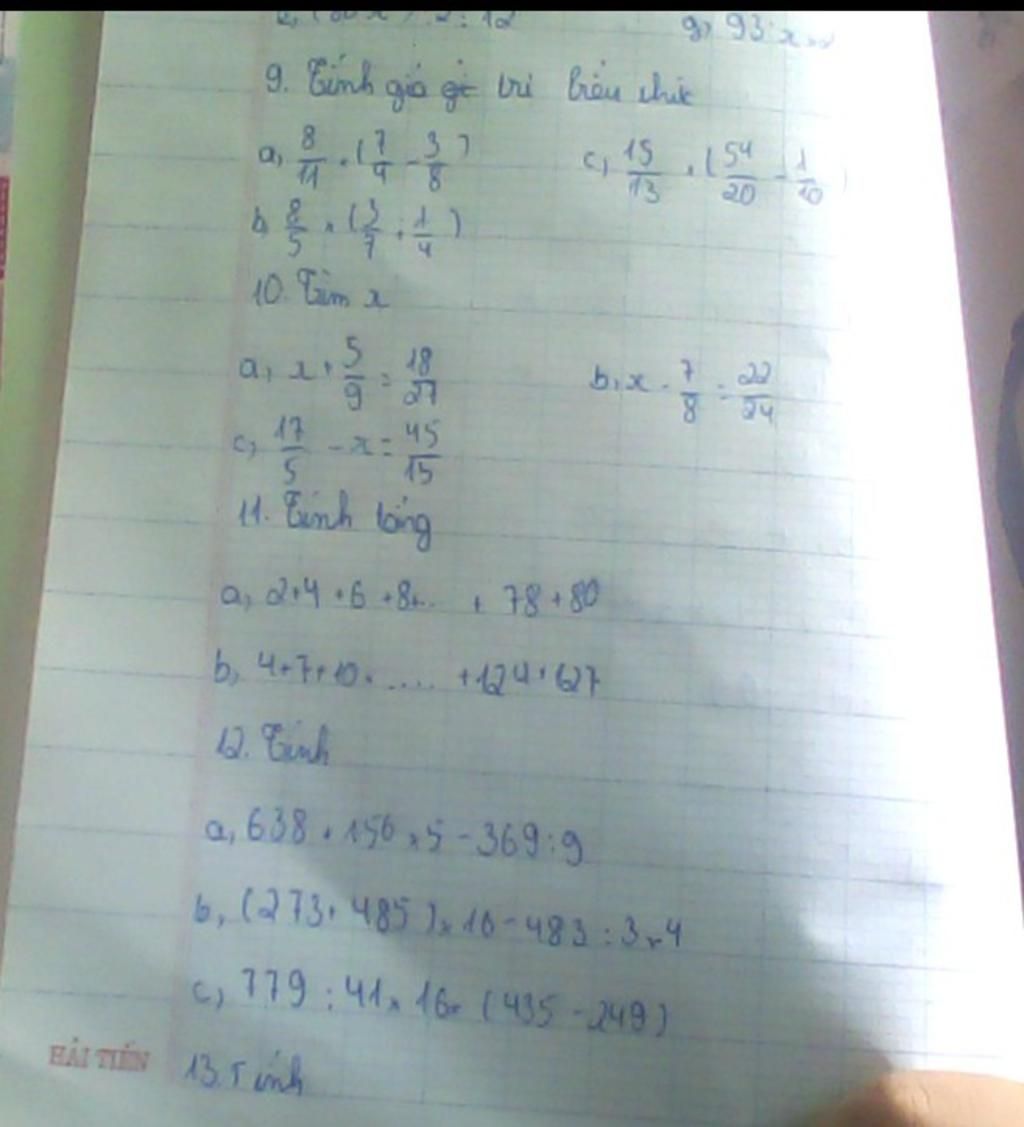 g, 93 : x
9. Tính giá trị biểu thức
a, 8/11 × (7/4 - 3/8)
c, 15/13 × (54/20 - 1/10)
b, 8/5 × (3/7 + 1/4)
10. Tìm x
a, x + 5/9 = 18/27
b, x - 7/8 = 22/24
c, 17/5 - x = 45/15
11. Tính tổng
a, 2+4+6+8+... + 78+80
b, 4+7+10+..... +124+627
12. Tính
a, 638 + 156 × 5 - 369 : 9
b, (273 + 485) × 16 - 483 : 3 × 4
c, 779 : 41 × 16 (435 - 249)
13. Tính
HẢI TIẾN